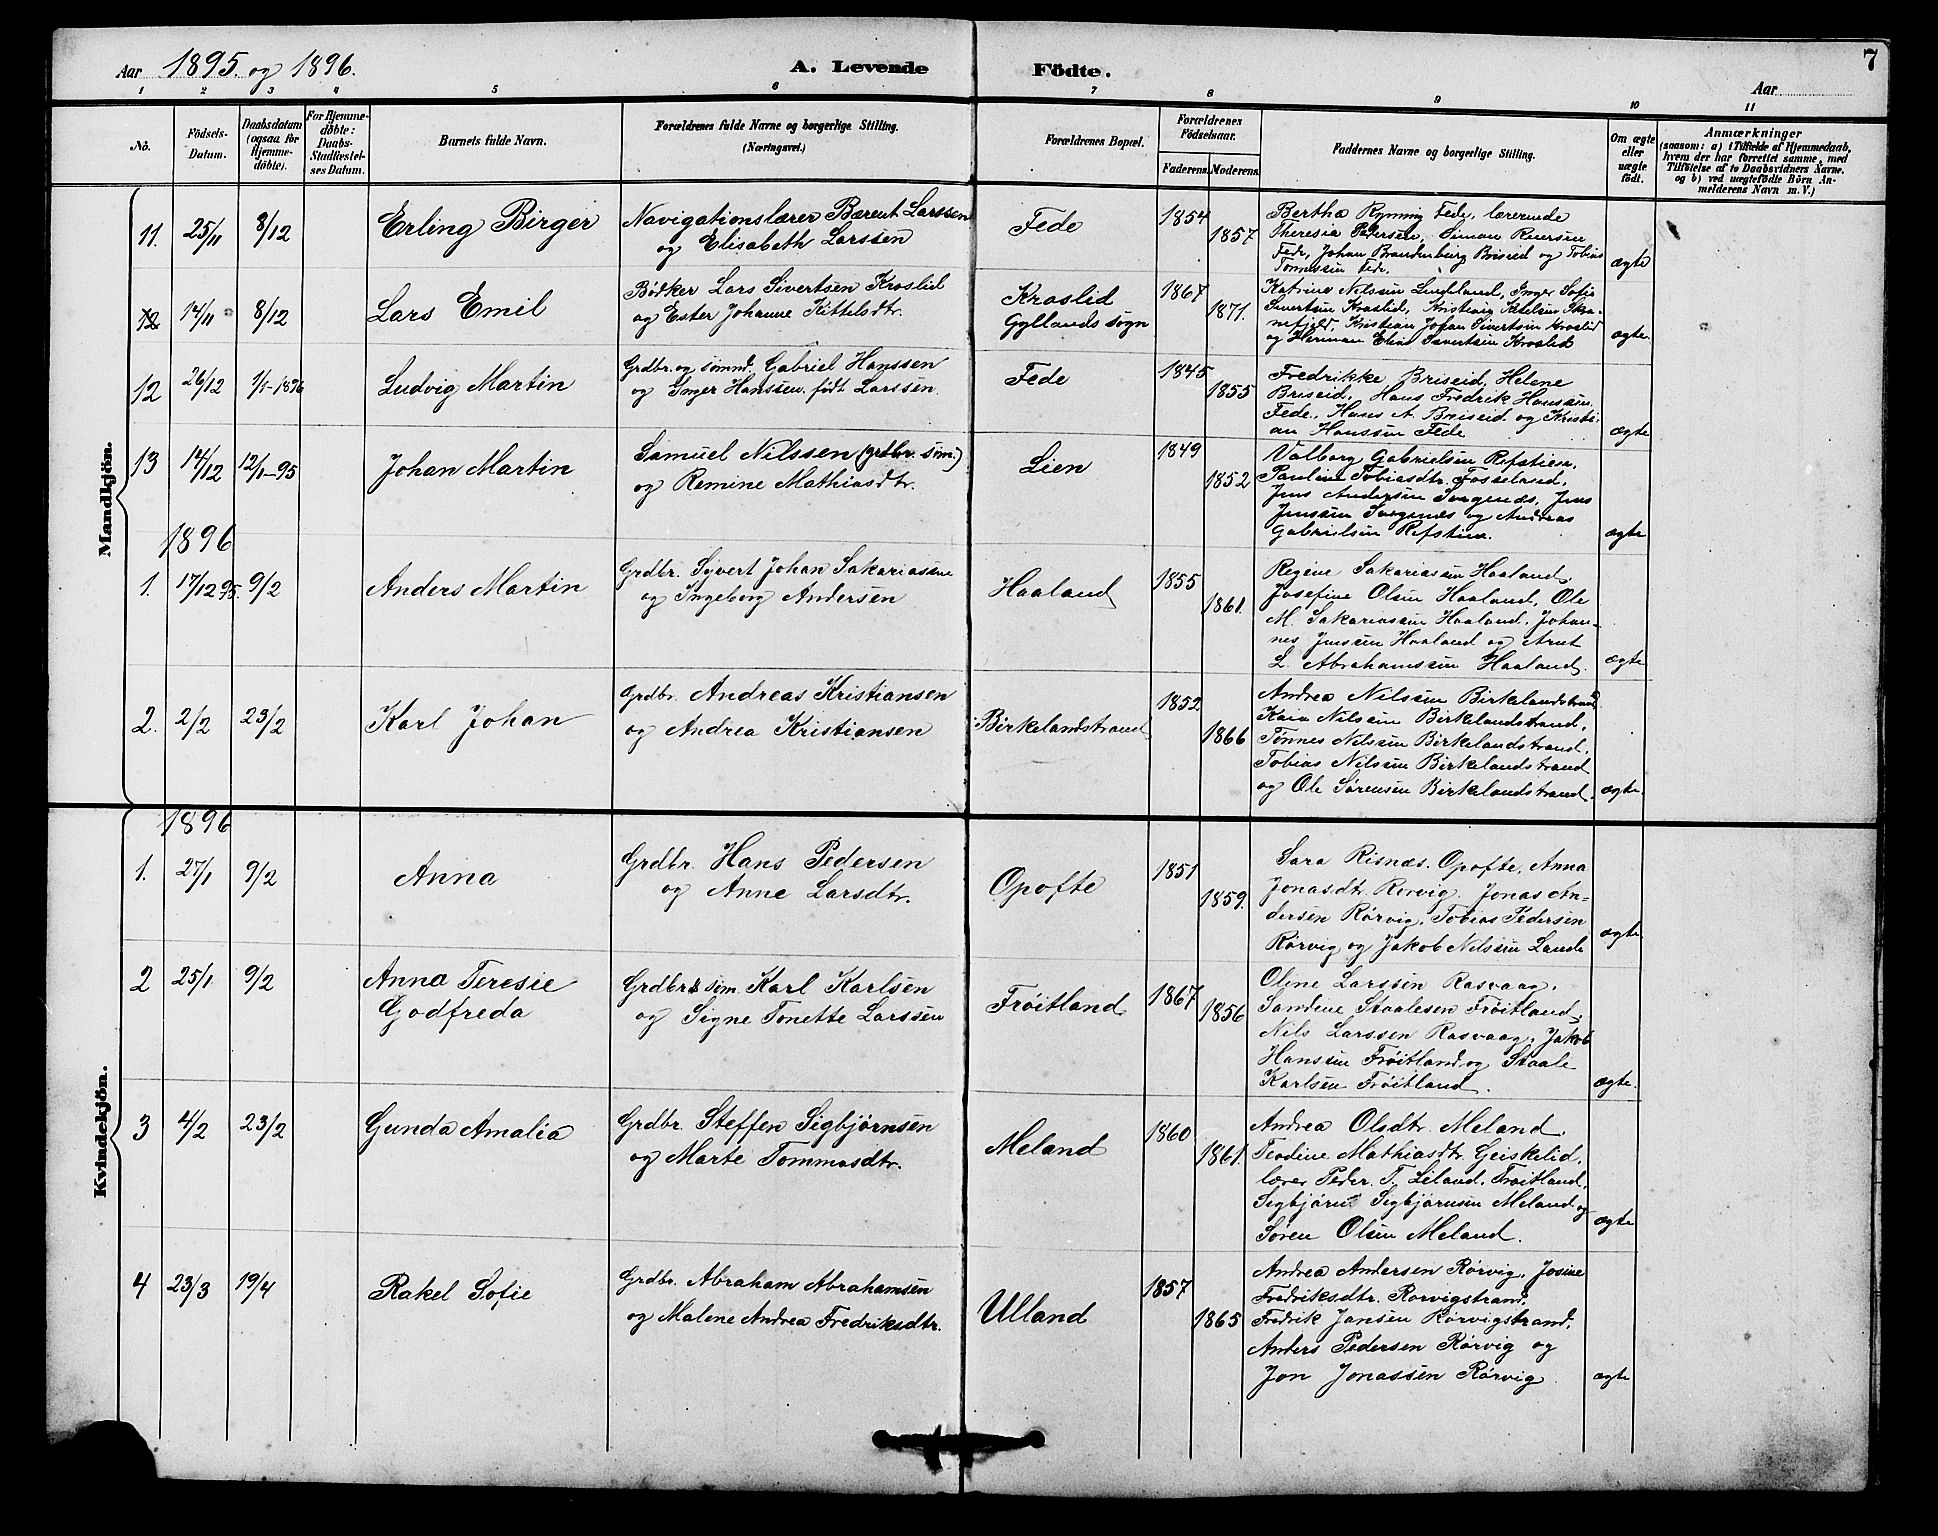 Aar 1895. og 1896. A. Levende Födte. Aar 7
1 2 3 4 5 6 7 8 9 10 11
No. Födsels-Datum. Daabsdatum (ogsaa for Hjemmedöbte). For Hjemmedöbte: Daabs-Stadfæstelses Datum. Barnets fulde Navn. Forældrenes fulde Navne og borgerlige Stilling. (Næringsvei.) Forældrenes Bopæl. Forældrenes Födselsaar. Faderens. Moderens. Faddernes Navne og borgerlige Stilling. Om ægte eller uægte födt. Anmærkninger (saasom: a) i Tilfælde af Hjemmedaab, hvem der har forrettet samme, med Tilföielse af to Daabsvidners Navne, og b) ved uægtefödte Börn Anmelderens Navn m. V.)
Mandkjön.
11. 25/11 8/12 Erling Birger Navigationslærer Bærent Larssen
og Elisabeth Larssen
Fede 1854 1857
Bertha Rynning Fede, lærerinde
Theresia Pedersen, Simon
Fede, Johan Brandenburg Briseid og Tobias
Tönnessen Fede.
ægte
12 14/11 8/12 Lars Emil Bödker Lars Sivertsen Kroslid
og Ester Johanne Kittelsdtr.
Kroslid
Gyllands sogn
1867 1871.
Katrine Nilssen Lindland, Inger Sofie
Sivertsen Kroslid,
Kristian Johan Sivertsen Kroslid
og Herman Elias Sivertsen Kroslid
ægte.
12 26/12 1/1-1896 Ludvig Martin Grdbr. og sømnd. Gabriel Hanssen
og Inger Hanssen. födt Larssen.
Fede 1845 1855
Fredrikke Briseid, Helene
Briseid, Hans Fredrik Hanssen
Fede, Hans A. Briseid og Kristi-
an Hanssen Fede
ægte
13 14/12 12/1-95 Johan Martin Samuel Nilssen (grdbr. søm.)
og Remine Mathiasdtr.
Lien 1849 1852
Valborg Gabrielsen Refstien,
Pauline Tobiasdtr. Fosseland,
Jens Andersen Sorgenæs, Jens
Jenssen Sorgenæs og Andreas
Gabrielsen Refstien.
ægte
1896
1. 17/12 95. 9/2 Anders Martin Grdbr. Syvert Johan Sakariassen
og Ingeborg Andersen
Haaland 1855 1861.
Regine Sakariassen Haaland,
Josefine Olsen Haaland, Ole
M. Sakariassen Haaland, Johan-
nes Jenssen Haaland og Arnt
L. Abrahamssen Haaland.
ægte
2. 2/2 23/2 Karl Johan Grdbr. Andreas Kristiansen
og Andrea Kristiansen
Birkelandstrand 1852 1866
Andrea Nilsen Birkelandstrand
Kaia Nilsen Birkelandstrand,
Tønnes Nilssen Birkelandstrand,
Tobias Nilssen Birkelandstrand
og Ole Sørensen Birkelandstrand.
ægte.
Kvindekjön.
1896
1. 27/1 9/2 Anna Grdbr. Hans Pedersen
og Anne Larsdtr.
Opofte 1851 1859.
Sara Risnæs. Opofte, Anna
Jonasdtr. Rørvig. Jonas An-
dersen Rörvig, Tobias Pedersen
Rörvig og Jakob Nilssen Lande
ægte.
2 25/1 9/2 Anna Teresie
Godfreda
Grdbr & søm. Karl Karlsen
og Signe Tonette Larssen
Fröitland 1867 1856
Oline Larssen Rasvaag,
Sandine Staalesen Fröitland,
Nils Larssen Rasvaag, Jakob
Hanssen Fröitland og Staale
Karlsen Fröitland.
ægte.
3 4/2 23/2 Gunda Amalia Grdbr. Steffen Sigbjørnsen
og Marte Tommasdtr.
Meland 1860 1861.
Andrea Olsdtr. Meland,
Teodine Mathiasdtr. Geiskelid,
lærer Peder. T. Liland. Fröitland,
Sigbjörn Sigbjörnsen Meland og
Sören Olsen Meland.
ægte
4 23/3 19/4 Rakel Sofie Grdbr. Abraham Abrahamsen
og Malene Andrea Fredriksdtr.
Ulland 1857 1865
Andrea Andersen Rörvig, Josine
Fredriksdtr. Rörvigstrand,
Fredrik Jansen Rörvigstrand,
Anders Pedersen Rörvig og
Jon Jonassen Rörvig.
ægte